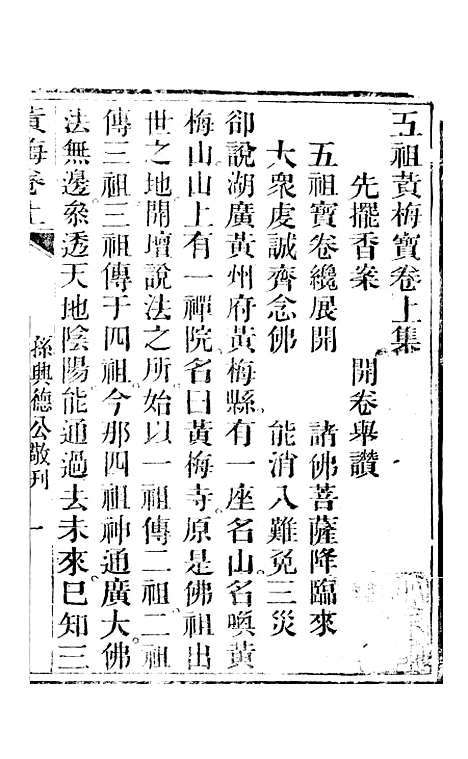 五祖黃梅寶卷上集
先擺香案　開卷舉讚
五祖寶卷纔展開　諸佛菩薩降臨來
大衆虔誠齊念佛　能消八難免三災
卻說湖廣黃州府黃梅縣有一座名山名喚黃
梅山山上有一禪院名曰黃梅寺原是佛祖出
世之地開壇說法之所始以一祖傳二祖二祖
傳三祖三祖傳于四祖今那四祖神通廣大佛
法無邊叅透天地陰陽能通過去未來巳知三
黃梅卷上
孫興德公敬刊　一